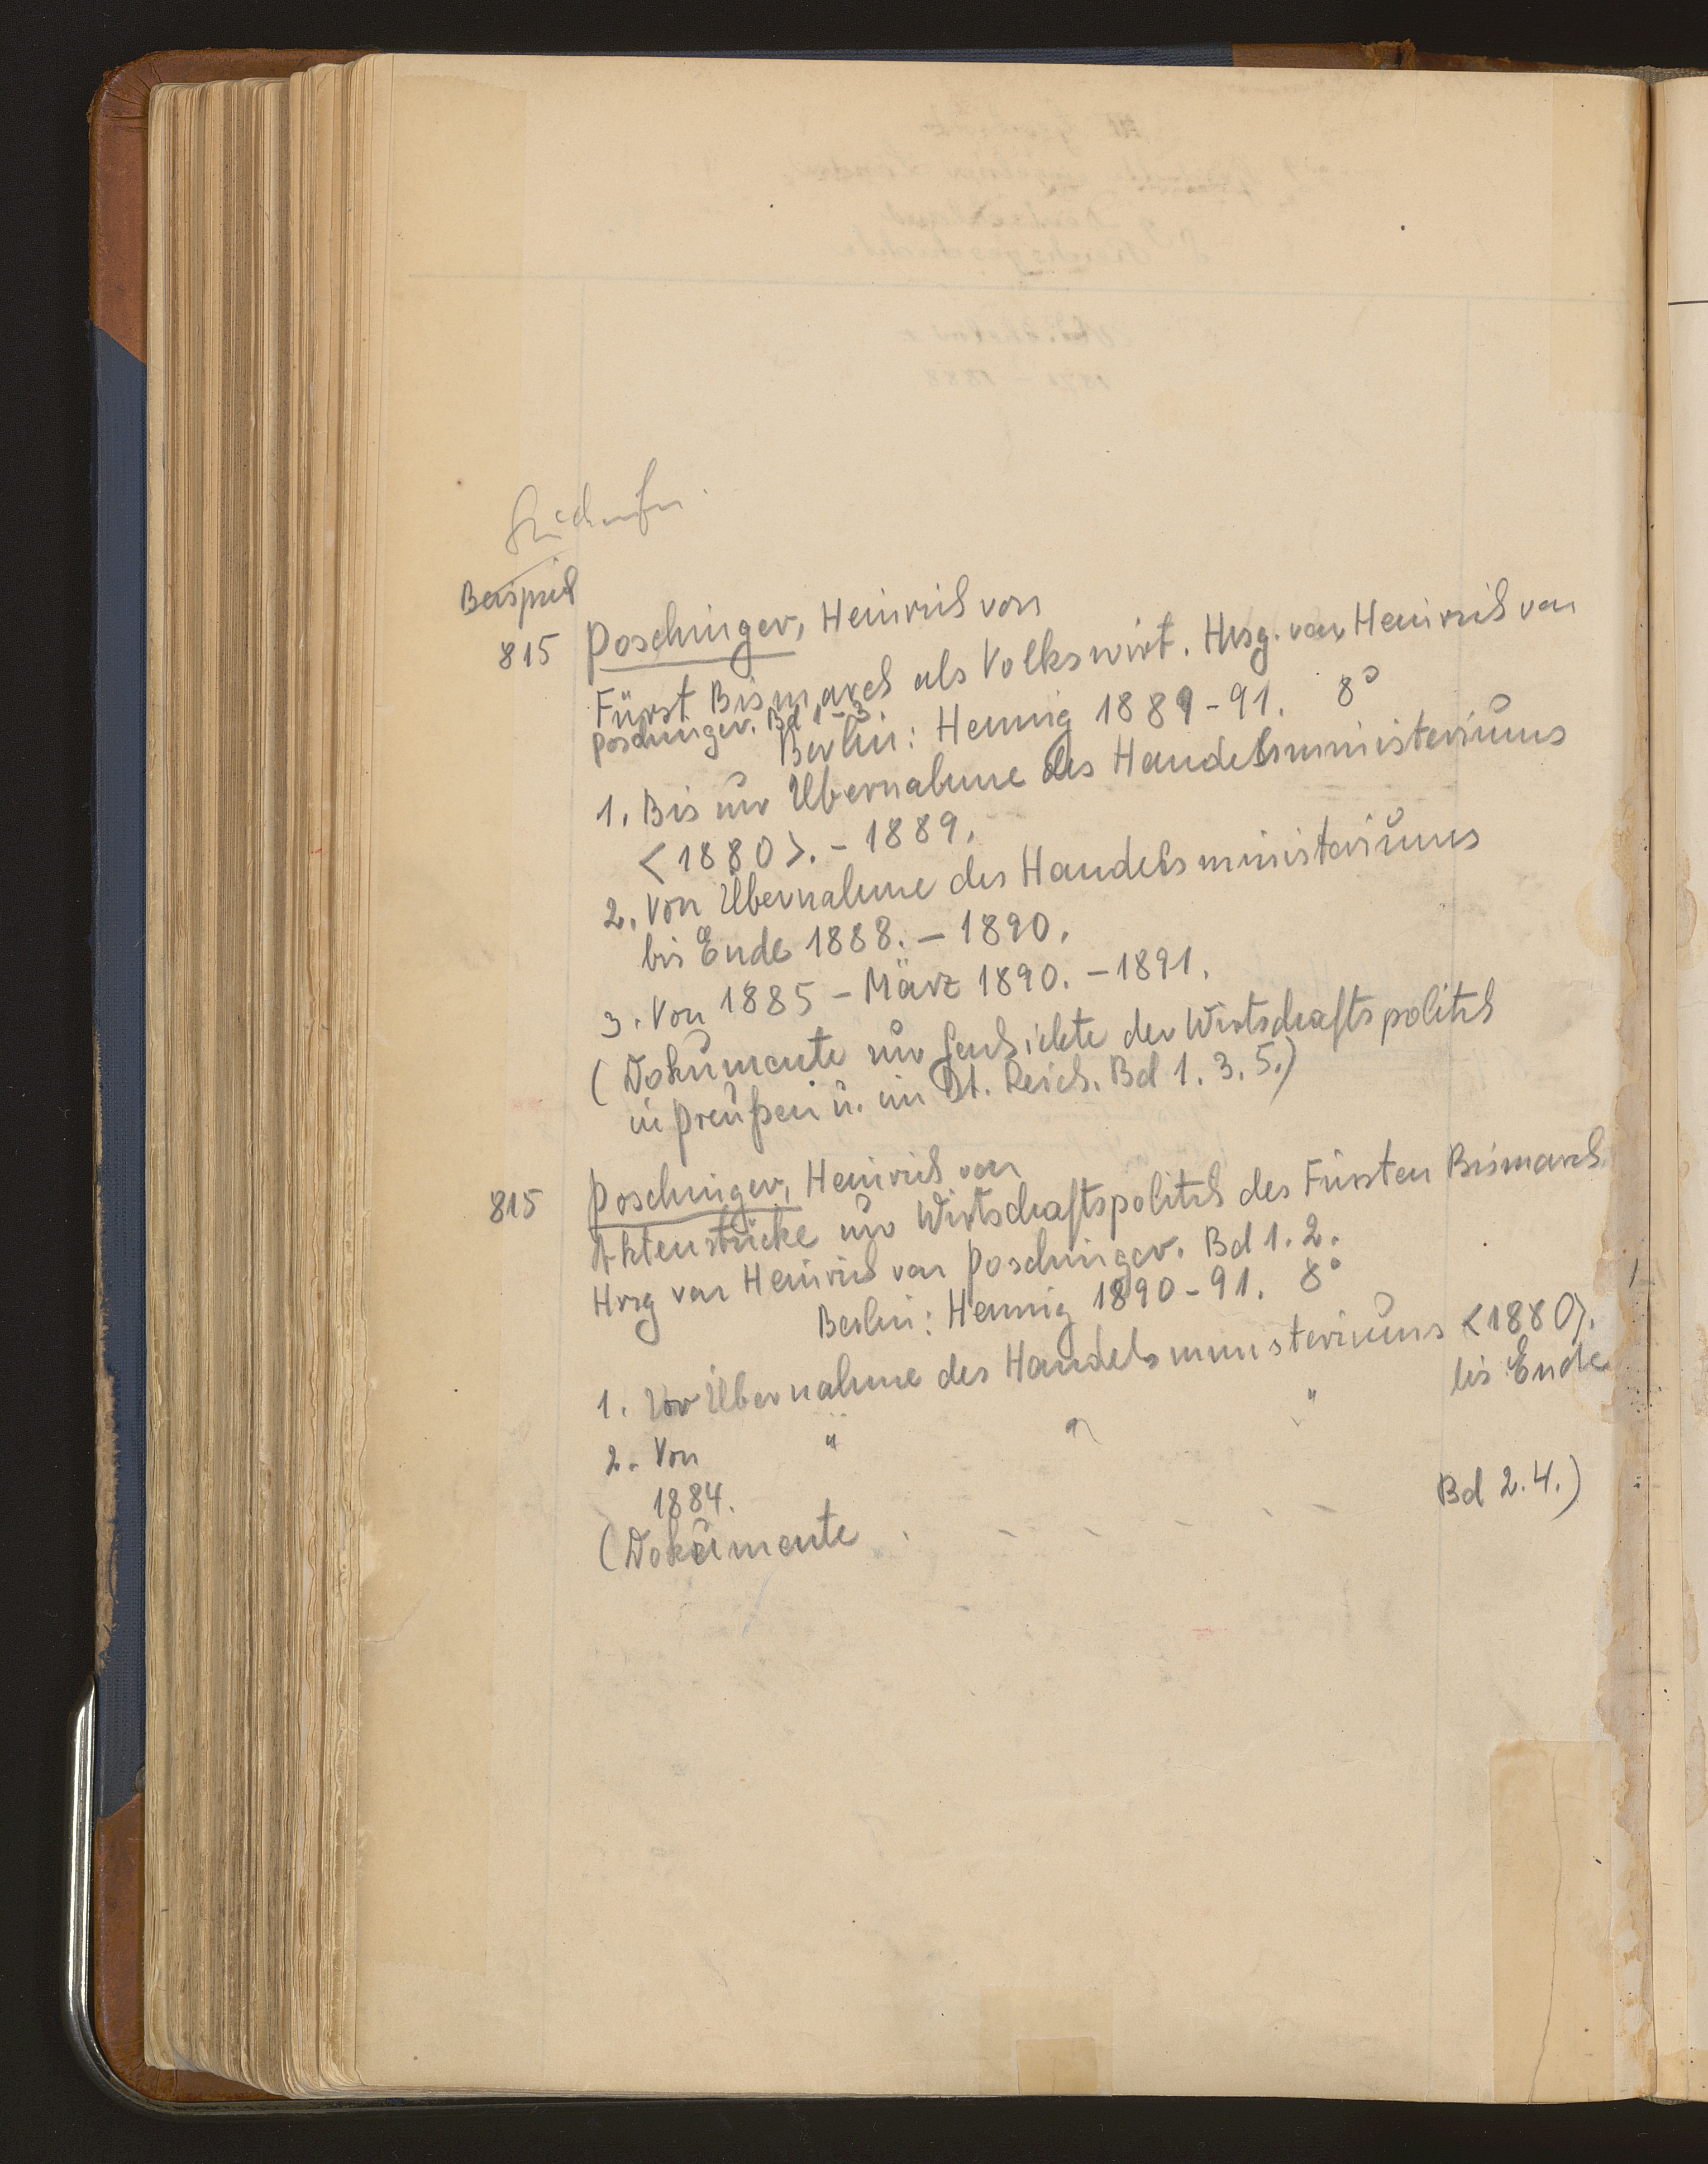 Beispiel
815 Poschinger, Heinrich von
Fürst Bismarck als Volkswirt. Hrsg. von Heinrich von
Poschinger. Bd 1-3
Berlin: Hennig 1889-91. 8°
1. Bis zur Übernahme des Handelsministeriums
<1880>. - 1889.
2. Von Übernahme des Handelsministeriums
bis Ende 1888. - 1890.
3. Von 1885 - März 1890. - 1891.
(Dokumente zur Geschichte der Wirtschaftspolitik
in Preußen u. im Dt. Reich. Bd 1. 3. 5.)
815 Poschinger, Heinrich von
Aktenstücke zur Wirtschaftspolitik des Fürsten Bismarck.
Hrsg von Heinrich von Poschinger. Bd 1. 2.
Berlin: Hennig 1890-91. 8°
1. Vor Übernahme des Handelsministeriums <1880>.
2. Von " " " bis Ende
1884.
(Dokumente . - - - - - Bd 2. 4.)